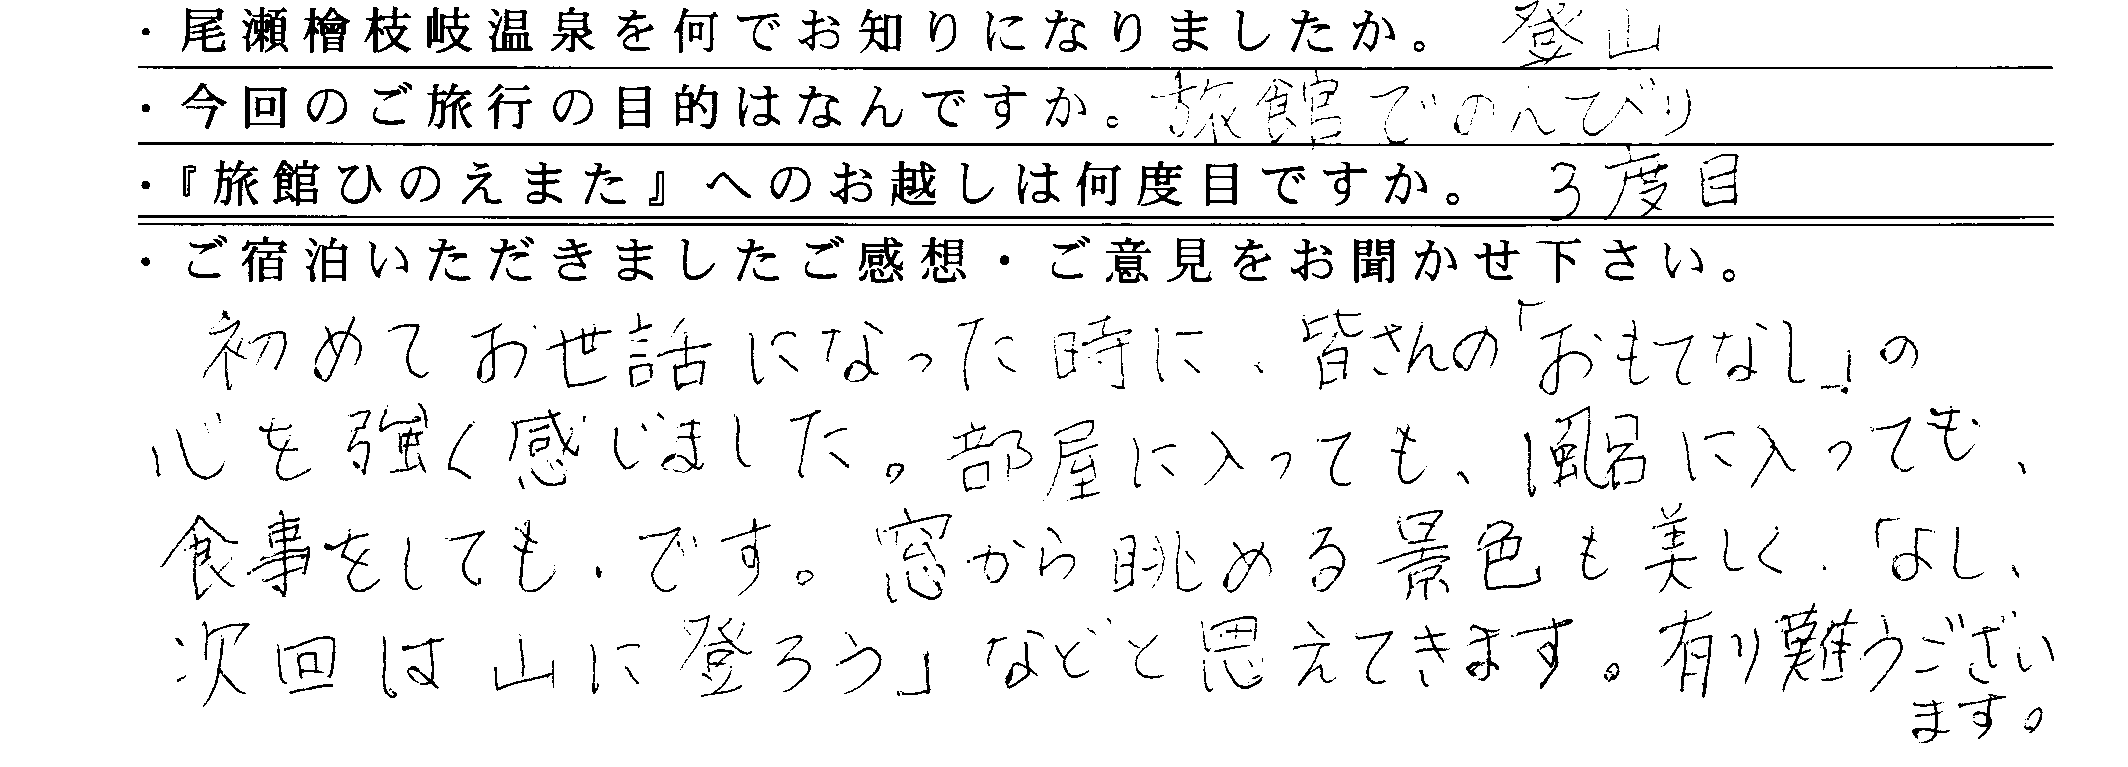 ・尾瀬檜枝岐温泉を何でお知りになりましたか。 登山
・今回のご旅行の目的はなんですか。旅館でのんびり
・『旅館ひのえまた』へのお越しは何度目ですか。 3度目
・ご宿泊いただきましたご感想・ご意見をお聞かせ下さい。
初めてお世話になった時に、皆さんの「おもてなし」の
心を強く感じました。部屋に入っても、風呂に入っても、
食事をしても、です。窓から眺める景色も美しく、「よし、
次回は山に登ろう」などと思えてきます。有り難うござい
ます。